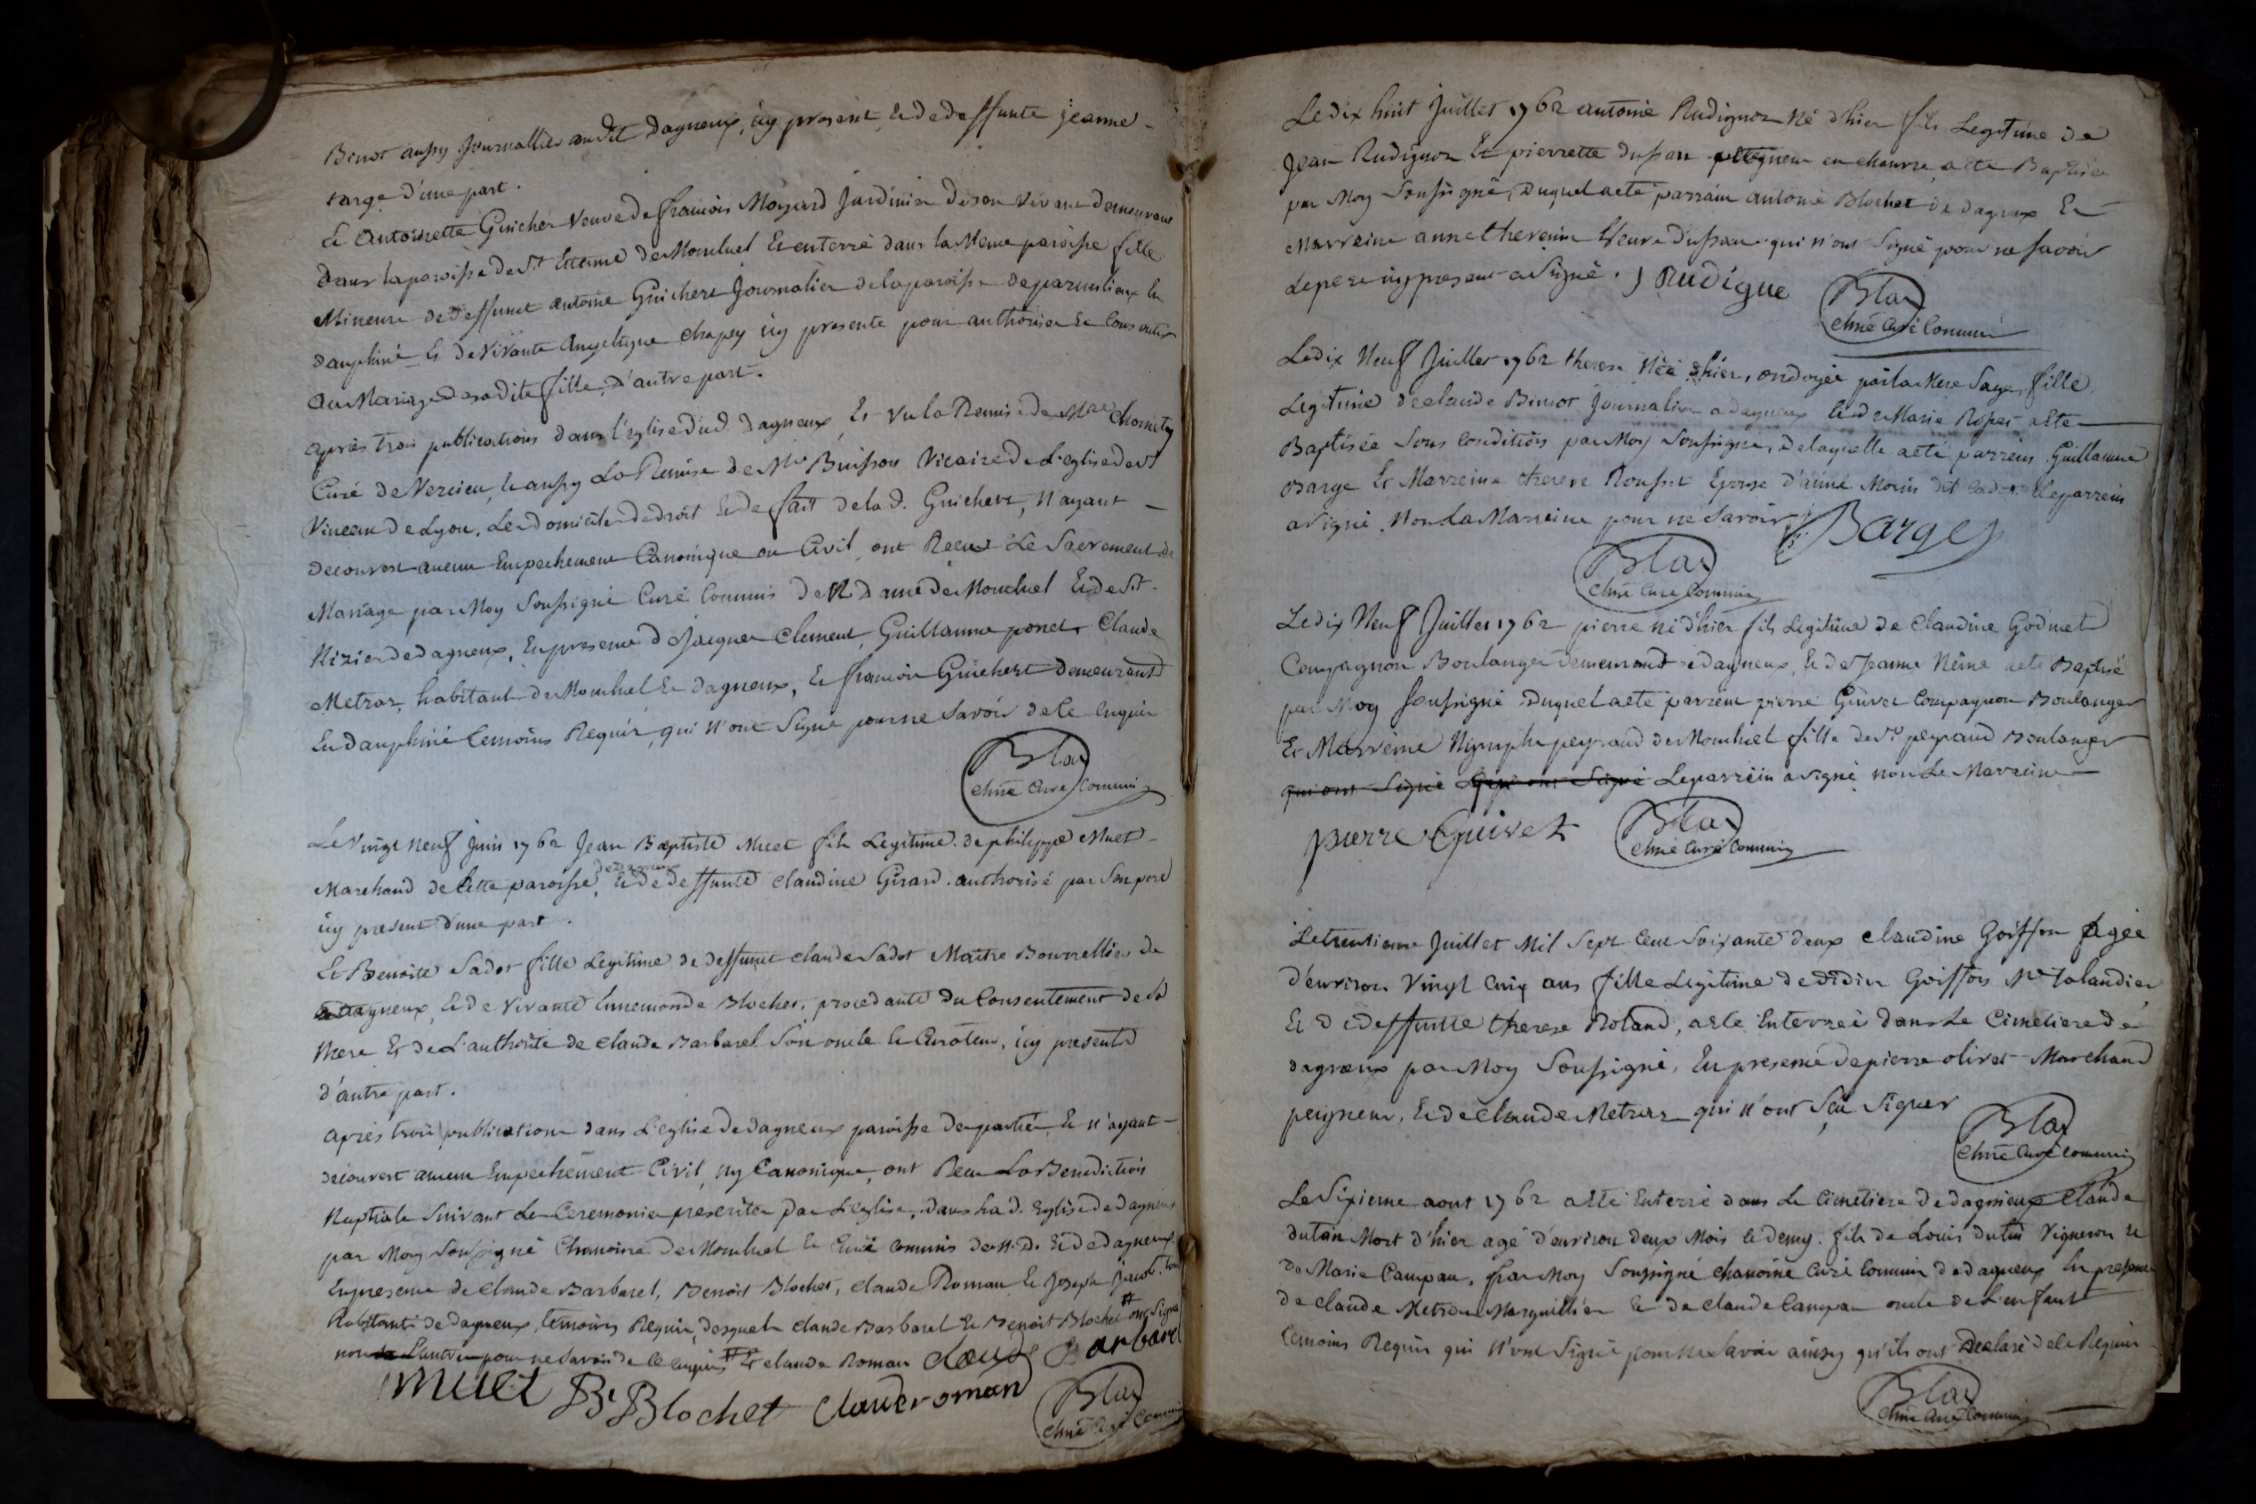 Binot aussy journallier au dit dagneux, icy present, et de deffunte jeanne
Barge d'une part.
Et Antoinette Guichert veuve de françois Moyard jardinier de son vivant demeurant
dans la paroisse de St Etienne de Montluel et enterré dans la Même paroisse fille
Mineure de deffunct antoine Guichert journalier de la paroisse de parmilieux en
dauphiné et de vivante Angelique chapuy icy presente pour authoriser et consentir
au Mariage de sa dite fille, d'autre part.
après trois publications dans l'église dud dagneux, Et vu la Remise de Mre
Curé de Vercieu, et aussy La Remise de Mr Buisson Vicaire de L'eglise de St
Vincent de Lyon, Les domiciles de droit et de fait de la d. Guichert, N'ayant
decouvert aucun Empechement Canonique ou Civil, ont Receu Le Sacrement de
Mariage par Moy Soussigné Curé Commis de N d ame de Montluel Et de St.
Nizier de dagneux, En presence de Jacques Clement, Guillaume ponet, Claude
Metras, habitant de Montluel Et dagneux, Et françois Guichert demeurant
En dauphiné temoins Requis, qui n'ont Signé pour ne Savoir de ce enquis
Blax
chne Curé Commis
Le Vingt neuf Juin 1762 Jean Baptiste Muet fils Legitime de philippe Muet
Marchand de cette paroisse, de dagneux Et de deffunte claudine Girard. authorisé par Son pere
icy present d'une part.
Et Benoite Sadot fille Legitime de deffunct claude Sadot Maitre Bourrellier de
dagneux, Et de Vivante Ennemonde Blochet, procedante du Consentement de Sa
Mere Et de L'authorité de Claude Barbarel Son oncle et Curateur, icy present
d'autre part.
après trois publications dans L'eglise de dagneux paroisse des parties Et n'ayant
decouvert aucun Empechement Civil, ny Canonique, ont Receu La Benediction
Nuptiale Suivant Les Ceremonies prescrites par L'eglise, dans La d. Eglise de dagneux
par Moy Soussigné Chanoine de Montluel Et Curé commis de N.D. Et de dagneux
En presence de Claude Barbarel, Benoit Blochet, Claude Roman Et Joseph Jacob, tous
habitants de dagneux, temoins Requis, desquels claude Barbarel Et Benoit Blochet ont Signé
non L'autre pour ne Savoir de ce enquis Et claude Roman claude Barbarel
muet B. Blochet claude roman
Blax
chne Curé Commis
Le dix huit Juillet 1762 antoine Rudignon Né d'hier fils Legitime de
Jean Rudignon Et pierrette dussau peigneur en chanvre, a été Baptisé
par Moy Soussigné, Duquel a eté parrain antoine Blochet de dagneux Et
Marraine anne thevenin veuve dussau qui n'ont Signé pour ne savoir
Le pere icy present a Signé. J Rudigue
Blax
chne Curé Commis
Le dix Neuf Juillet 1762 therese Née d'hier, ondoyée par la Mere Sage, fille
Legitime de claude Binot Journalier a dagneux et de Marie Ropet a été
Baptisée Sous Condition par Moy Soussigné, de laquelle a eté parrein Guillaume
Barge Et Marreine therese Rousset Epouse d'aimé Morin dit Le parrein
a signé, Non La Marreine pour ne Savoir Barge
Blax
chne Curé Commis
Le dix Neuf Juillet 1762 pierre né d'hier fils Legitime de Claudine Godmet
Compagnon Boulanger demeurant a dagneux, Et de Jeanne Nême a eté Baptisé
par Moy Soussigné Duquel a eté parrein pierre Guivet Compagnon Boulanger
Et Marreine Nymphe peyraud de Montluel fille de Sr peyraud Boulanger
qui ont Signé qui ont Signé Le parrein a signé non La Marreine
pierre Guivet
Blax
chne Curé Commis
Le trentieme Juillet Mil Sept Cent Soixante deux claudine Goiffon agée
d'environ Vingt Cinq ans fille Legitime de didier Goiffon Me taliandier
Et de deffunte therese Roland, a eté Enterrée dans Le Cimetiere de
dagneux par Moy Soussigné, En presence de pierre olivet Marchand
peigneur, Et de Claude Metras qui n'ont Sçu Signer
Blax
chne Curé Commis
Le Sixieme aout 1762 a eté Enterré dans Le Cimetiere de dagneux Claude
dutin Mort d'hier agé d'environ deux Mois et demy. fils de Louis dutin Vigneron Et
de Marie Campan, par Moy Soussigné chanoine curé Commis de dagneux En presence
de claude Metras Marguillier Et de claude Campan oncle de L'enfant
temoins Requis qui N'ont Signé pour ne Savoir ainsy qu'ils ont declaré de ce Requis
Blax
chne Curé Commis